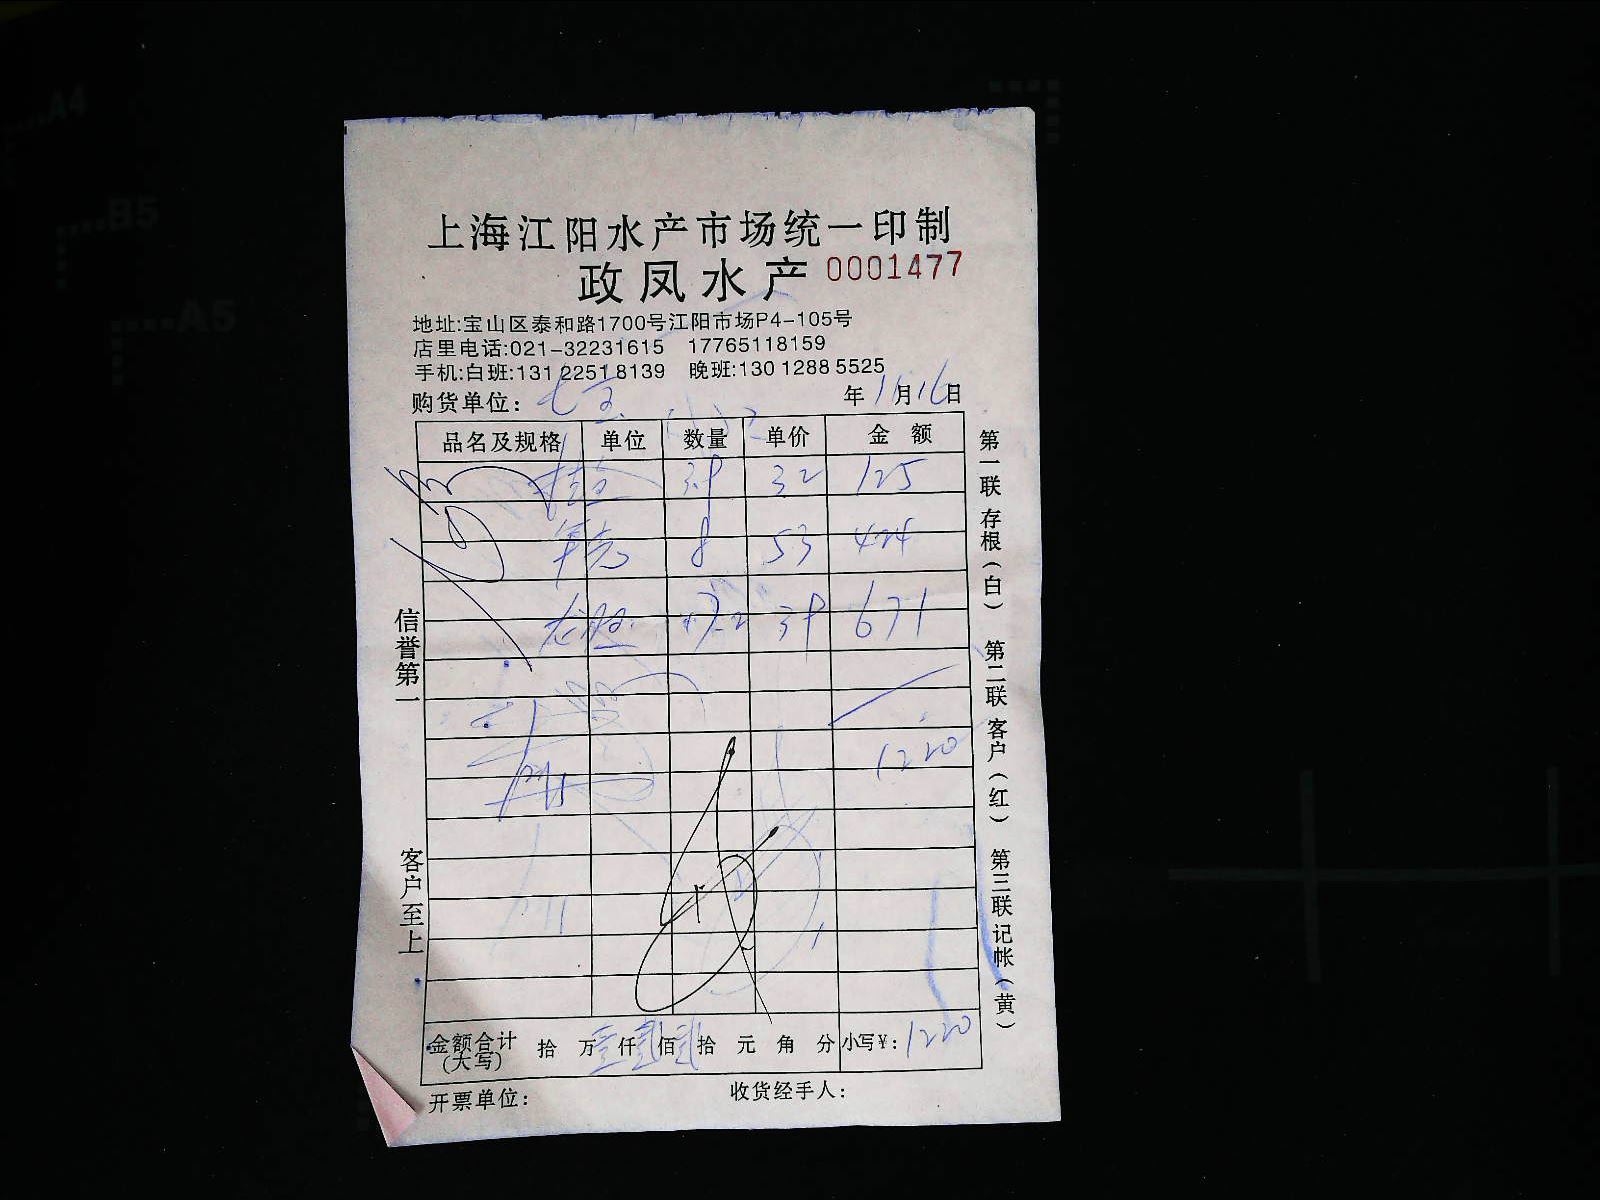 上海江阳水产市场统一印制
政凤水产 0001477
地址:宝山区泰和路1700号江阳市场P4-105号
店里电话:021-32231615 17765118159
手机:白班:131 2251 8139 晚班:130 1288 5525
购货单位: 七宝 年11月16日
品名及规格 单位 数量 单价 金额
3.9 32 125
8 53 424
17.2 39 671
1220
金额合计(大写) 拾 万壹仟贰佰贰拾 元 角 分 小写¥: 1220
开票单位: 收货经手人:
信誉第一
客户至上
第一联存根(白) 第二联客户(红) 第三联记帐(黄)
A4
B5
A5